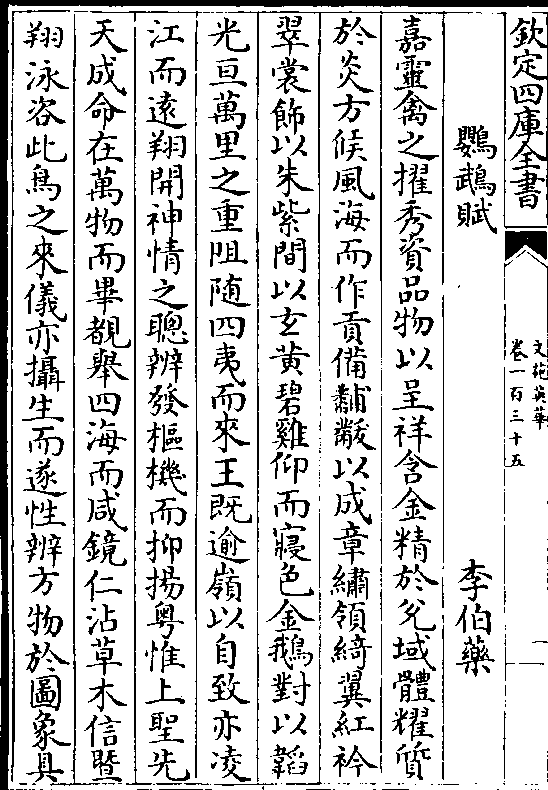 欽定四庫全書
文苑英華
卷一百三十五
一
鸚鵡賦
李伯藥
嘉靈禽之擢秀資品物以呈祥含金精於兊域體耀質
於炎方候風海而作貢備黼黻以成章繡領綺翼紅衿
翠裳飾以朱紫間以玄黄碧雞仰而寢色金鵝對以韜
光亘萬里之重阻随四夷而來王既逾嶺以自致亦凌
江而遠翔開神情之聰辨發樞機而抑揚粤惟上聖先
天成命在萬物而畢覩舉四海而咸鏡仁沾草木信曁
翔泳咨此鳥之來儀亦攝生而遂性辨方物於圖象具